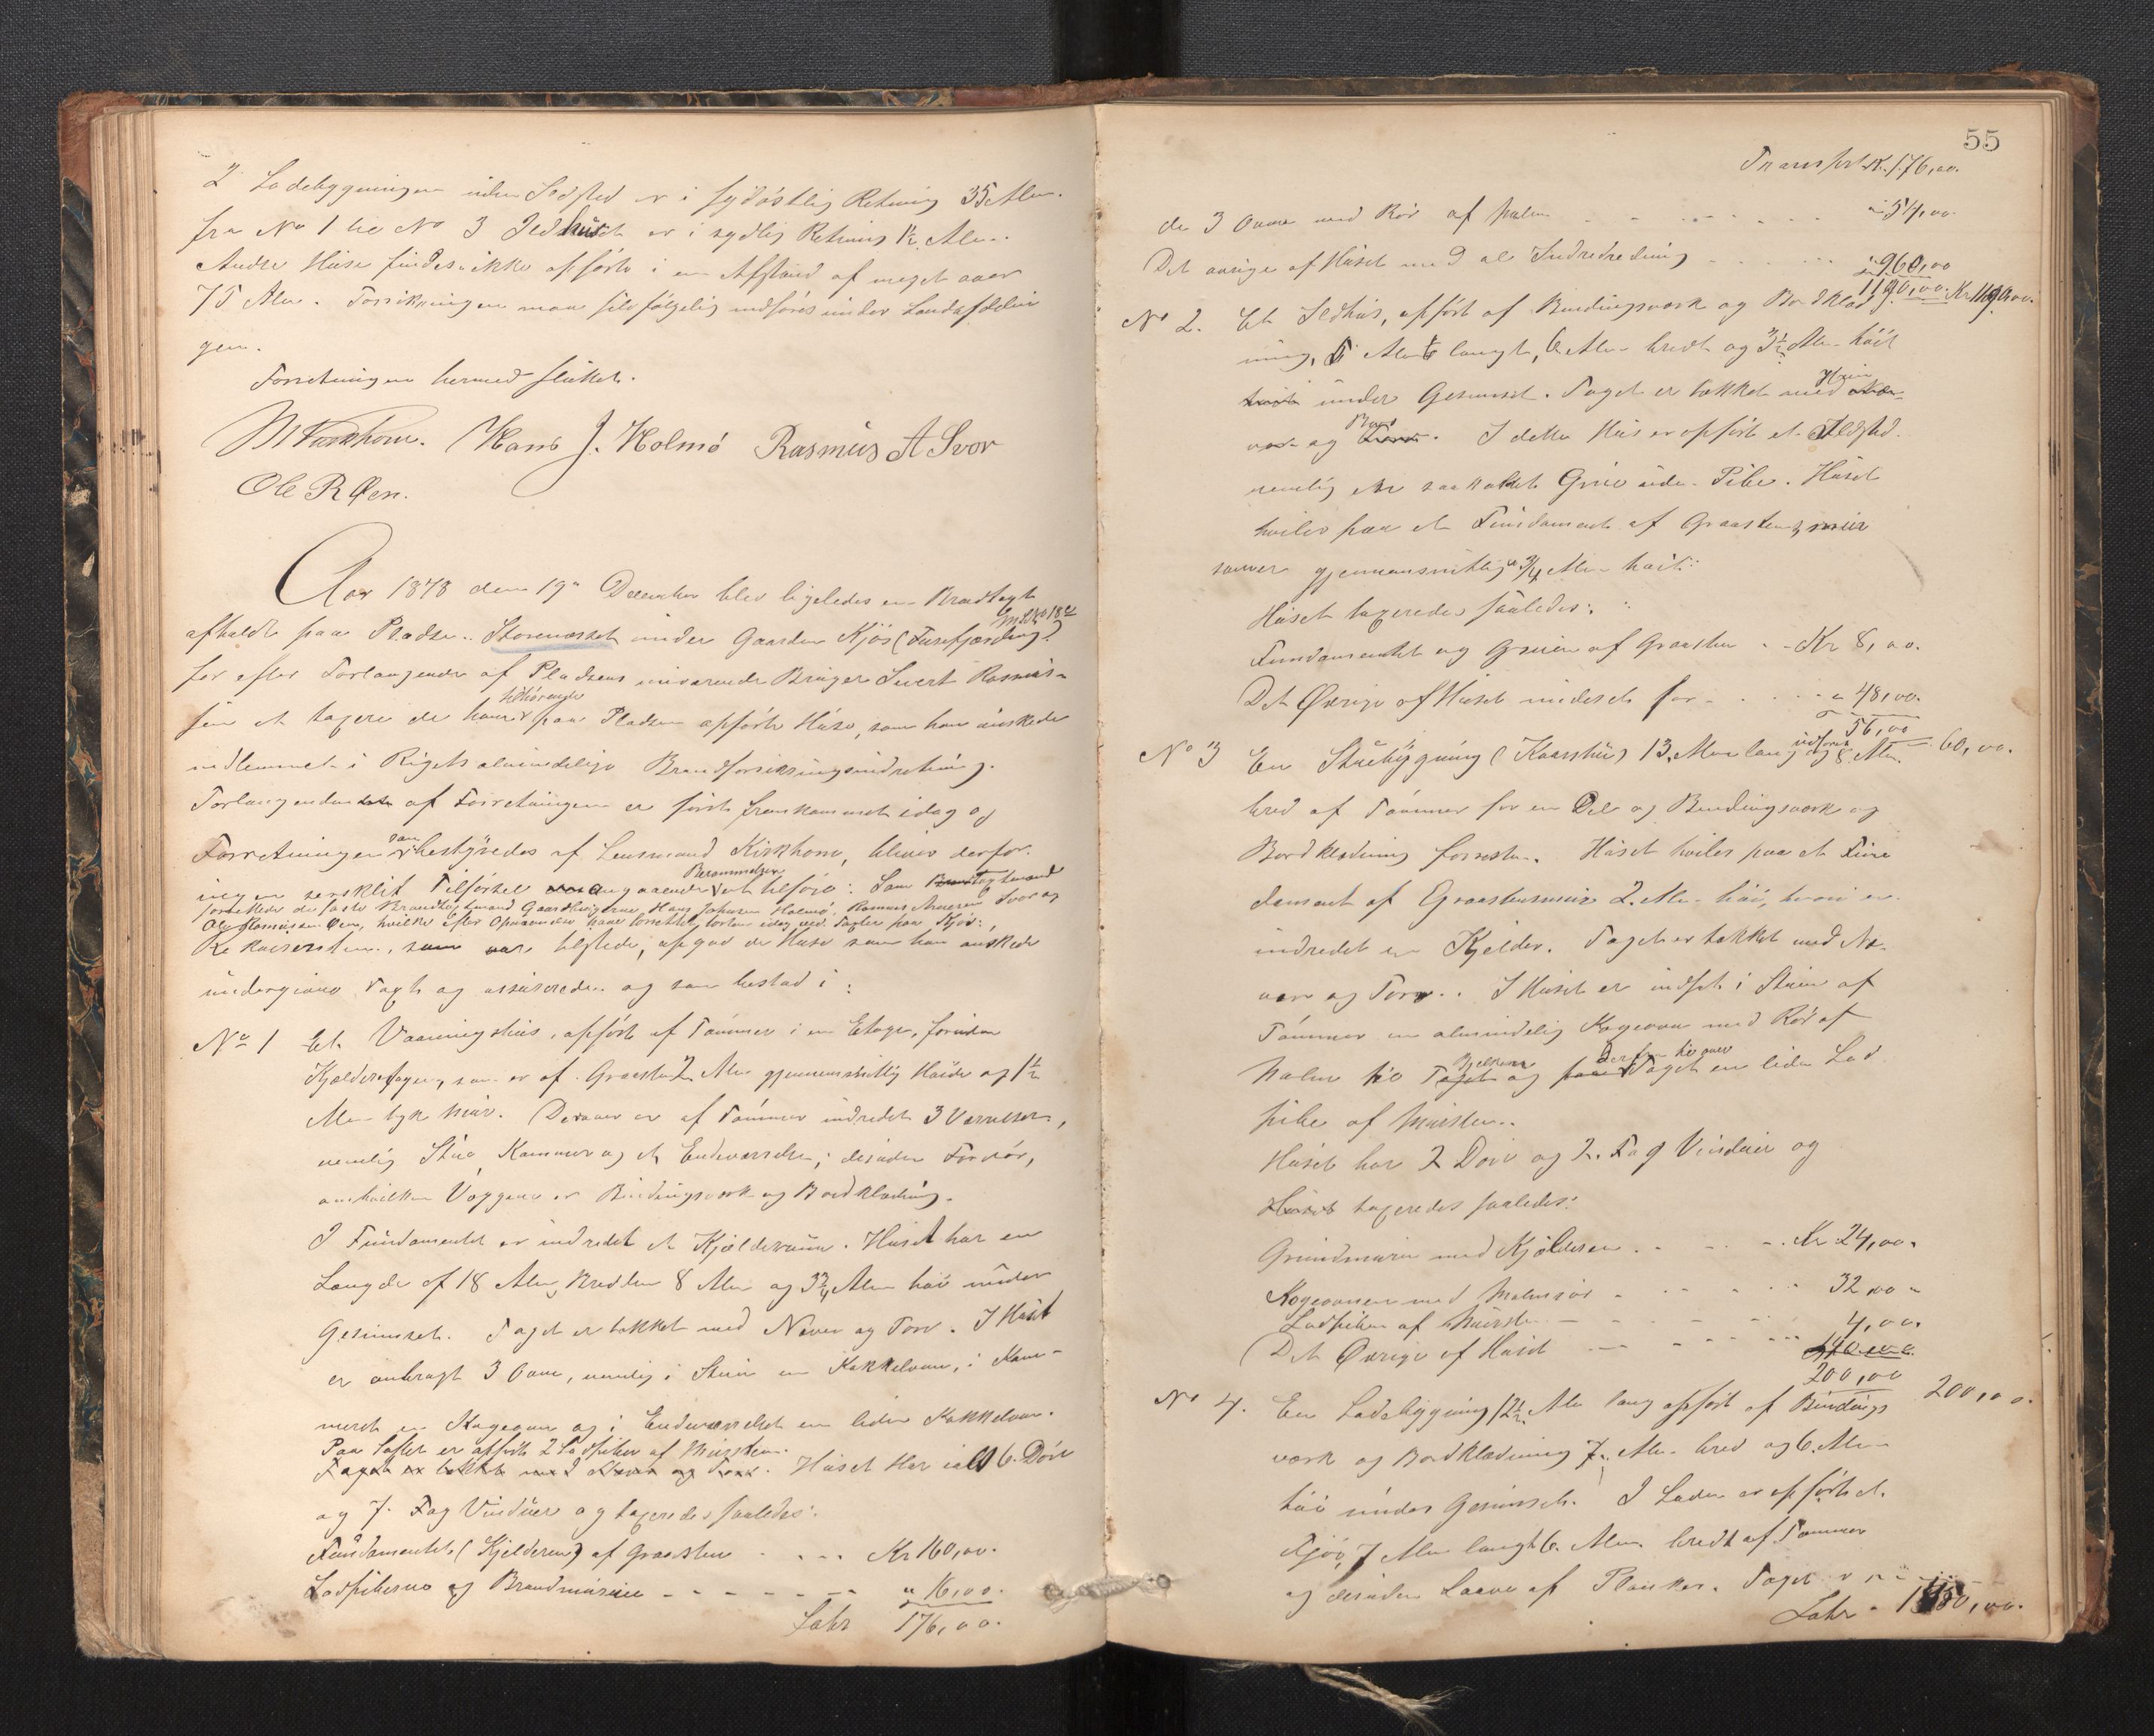 2 Ladebygningen uden Ildsted er i sydöstlig Retning 35 Alen
fra No 1 No 3 Ildhuset er i sydlig Retning 1½ Alen.
Andre Huse findes ikke opförte i en Afstand af meget over
75 Alen. Forsikringen maa fölgelig indföres under Landafdelin
gen.
Forretningen hermed sluttet.
Hans J. Holmö Rasmus A Svor
Ole R Øen.
Aar 1878 den 19de December blev ligeledes en Brandtaxt
afholdt paa Pladsen Storeneset under Gaarden Kjös (Dusefjærding)
for efter Forlangende af Pladsens nuværende Bruger Sivert Rasmus-
sen at taxere de ham tilhörende paa Pladsen opförte Huse, som han önskede
indlemmet i Rigets almindelige Brandforsikringsindretning.
Forlangendet af Forretningen er först fremkommet idag og
Forretningen som bestyredes af Lensmand Kirkhorn, bliver derfor
ingen særskilt Tilförsel angaaende Berammelsen at tilföie: Som Brandtaxtmænd
fremstillede de faste Brandtaxtmænd Gaardbrugerne Hans Johnsen Holmö, Rasmus Andersen Svor og
Ole Rasmussen Øen, hvilke efter Opnævnelse have forrettet forhen idag ved Taxten paa Kjös.
Rekvirenten, som var tilstede, opgav de Huse som han önskede
undergivne Taxt og assurerede og som bestod i:
No 1 Et Vaaningshus, opfört af Tömmer i en Etage, foruden
Kjelderetagen, som er af Graasten 2 Alen gjennemsnitlig Höide og 1½
Alen tyk Mur. Derover er af Tömmer indredet 3 Værelser,
nemlig Stue, Kammer og et Endeværelse; desuden Fordör,
om hvilken Væggene er Bindingsværk og Bordklædning.
I Fundamentet er indredet et Kjelderrum. Huset har en
Længde af 18 Alen, Bredden 8 Alen og 3¾ Alen höi under
Gesimset. Taget er tækket med Næver og Torv. I Huset
er anbragt 3 Ovne, nemlig i Stuen en Kakkelovn, i Kam-
meret en Kogeovn og i Endeværelset en liden Kakkelovn.
Paa Loftet er opfört 2 Ladpiber af Mursten.
Taget er tækket med Næver og Torv. Huset Har ialt 6 Döre
og 7 Fag Vinduer og taxeredes saaledes:
Fundamentet (Kjelderen) af Graasten . . . . Kr 160,00.
Ladpiberne og Brandmurene - - - - - - - „ 16,00.
Lahr 176,00.
55
Transport Kr. 176,00.
de 3 Ovne med Rör af Malm - - - - - - „ 54,00.
Det övrige af Huset med al Indredning - - - - - „ 960,00
1190,00. Kr 1190,00.
No 2. Et Ildhus, opfört af Bindingsværk og Bordklæd
ning, Alen langt, 6 Alen bredt og 3½ Alen höit
under Gesimset. Taget er tækket med
og . I dette Hus er opfört et Ildsted
nemlig en saakaldet Grue uden Pibe. Huset
hviler paa et Fundament af Graastensmur
gjennemsnitlig ¾ Alen höit.
Huset taxeredes saaledes:
Fundamentet og Gruen af Graasten . - Kr 8,00.
Det Øvrige af Huset for - . . . - „ 48,00.
56,00
No 3 En Stuebygning (Kaarstue) 13 Alen lang og 8 Alen 60,00.
bred af Tömmer for en Del og Bindingsværk og
Bordklædning forresten. Huset hviler paa et Fun
dament af Graastensmur 2 Alen höi, hvori er
indredet en Kjelder. Taget er tækket med Næ-
ver og Torv. I Huset er indsat i Stuen af
Tömmer en almindelig Kogeovn med Rör af
Malm til Taget og derfra hiover Taget en liden Lad
pibe af Mursten.
Huset har 2 Döre og 2 Fag Vinduer og
Huset taxeredes saaledes:
Grundmuren med Kjelderen . - - - . Kr 24,00.
Kogeovnen med Malmrör - . . - . . 32,00 „
Ladpiben af Mursten - - - - . . 4,00.
Det Øvrige af Huset - - - - - 140,00
200,00
No 4. En Ladebygning 12½ Alen lang opfört af Bindings 200,00.
værk og Bordklædning 7 Alen bred og 6 Alen
höi under Gesimset. I Laden er opfört et
Fjös, 7 Alen langt 6 Alen bredt af Tömmer
og desuden Laave af Planker. Taget
Lahr „ 1450,00.